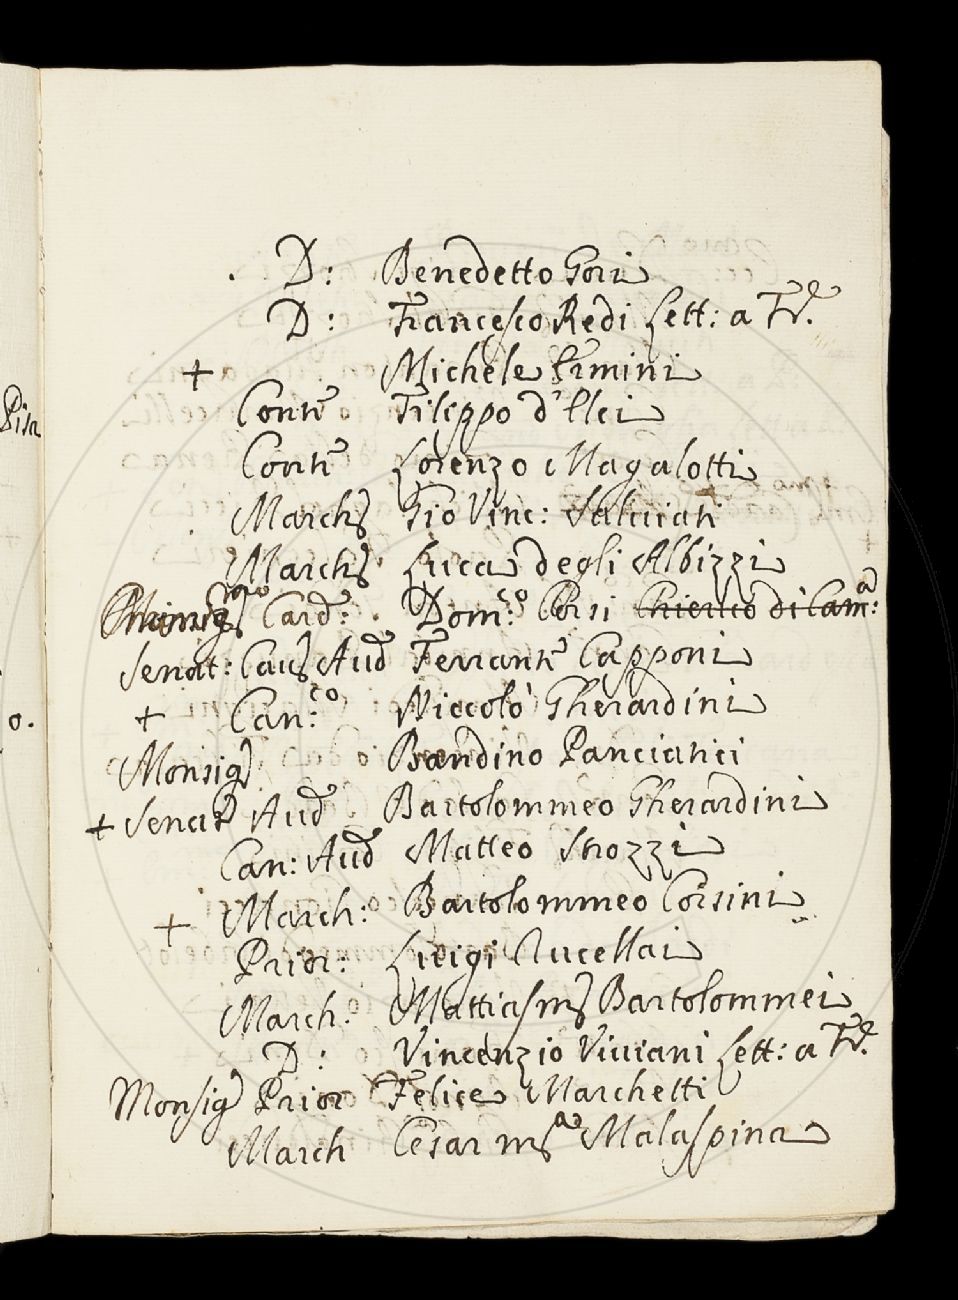 D: Benedetto Gori
D: Francesco Redi Lett: a Frᵉ.
+ Michele Ermini
Conte Filippo d'Elci
Conte Lorenzo Magalotti
March Gio Vinc: Salviati
March Luca degli Albizzi
Card: Dom:co Corsi Chierico di Cam:a
Senat: Caus Aud Ferrante Capponi
+ Can:co Niccolò Gherardini
Monsig Bandino Panciatici
+ Senat Aud Bartolommeo Gherardini
Can: Aud Matteo Strozzi
+ March: Bartolommeo Corsini
Prior: Luigi Rucellai
March: Mattias Bartolommei
D: Vincenzio Viviani Lett: a Frᵉ.
Monsig Prior Felice Marchetti
March Cesar Malaspina
Pisa
o.